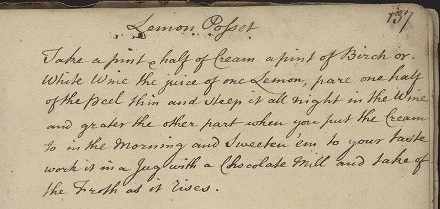 Lemon Posset
137
Take a pint & half of Cream a pint of Birch or
White Wine the juice of one Lemon, pare one half
of the peel thin and steep it all night in the Wine
and grater the other part when you put the Cream
to in the Morning and Sweeten 'em to your taste
work it in a Jug with a Chocolate Mill and take of
the Froth as it Rises.